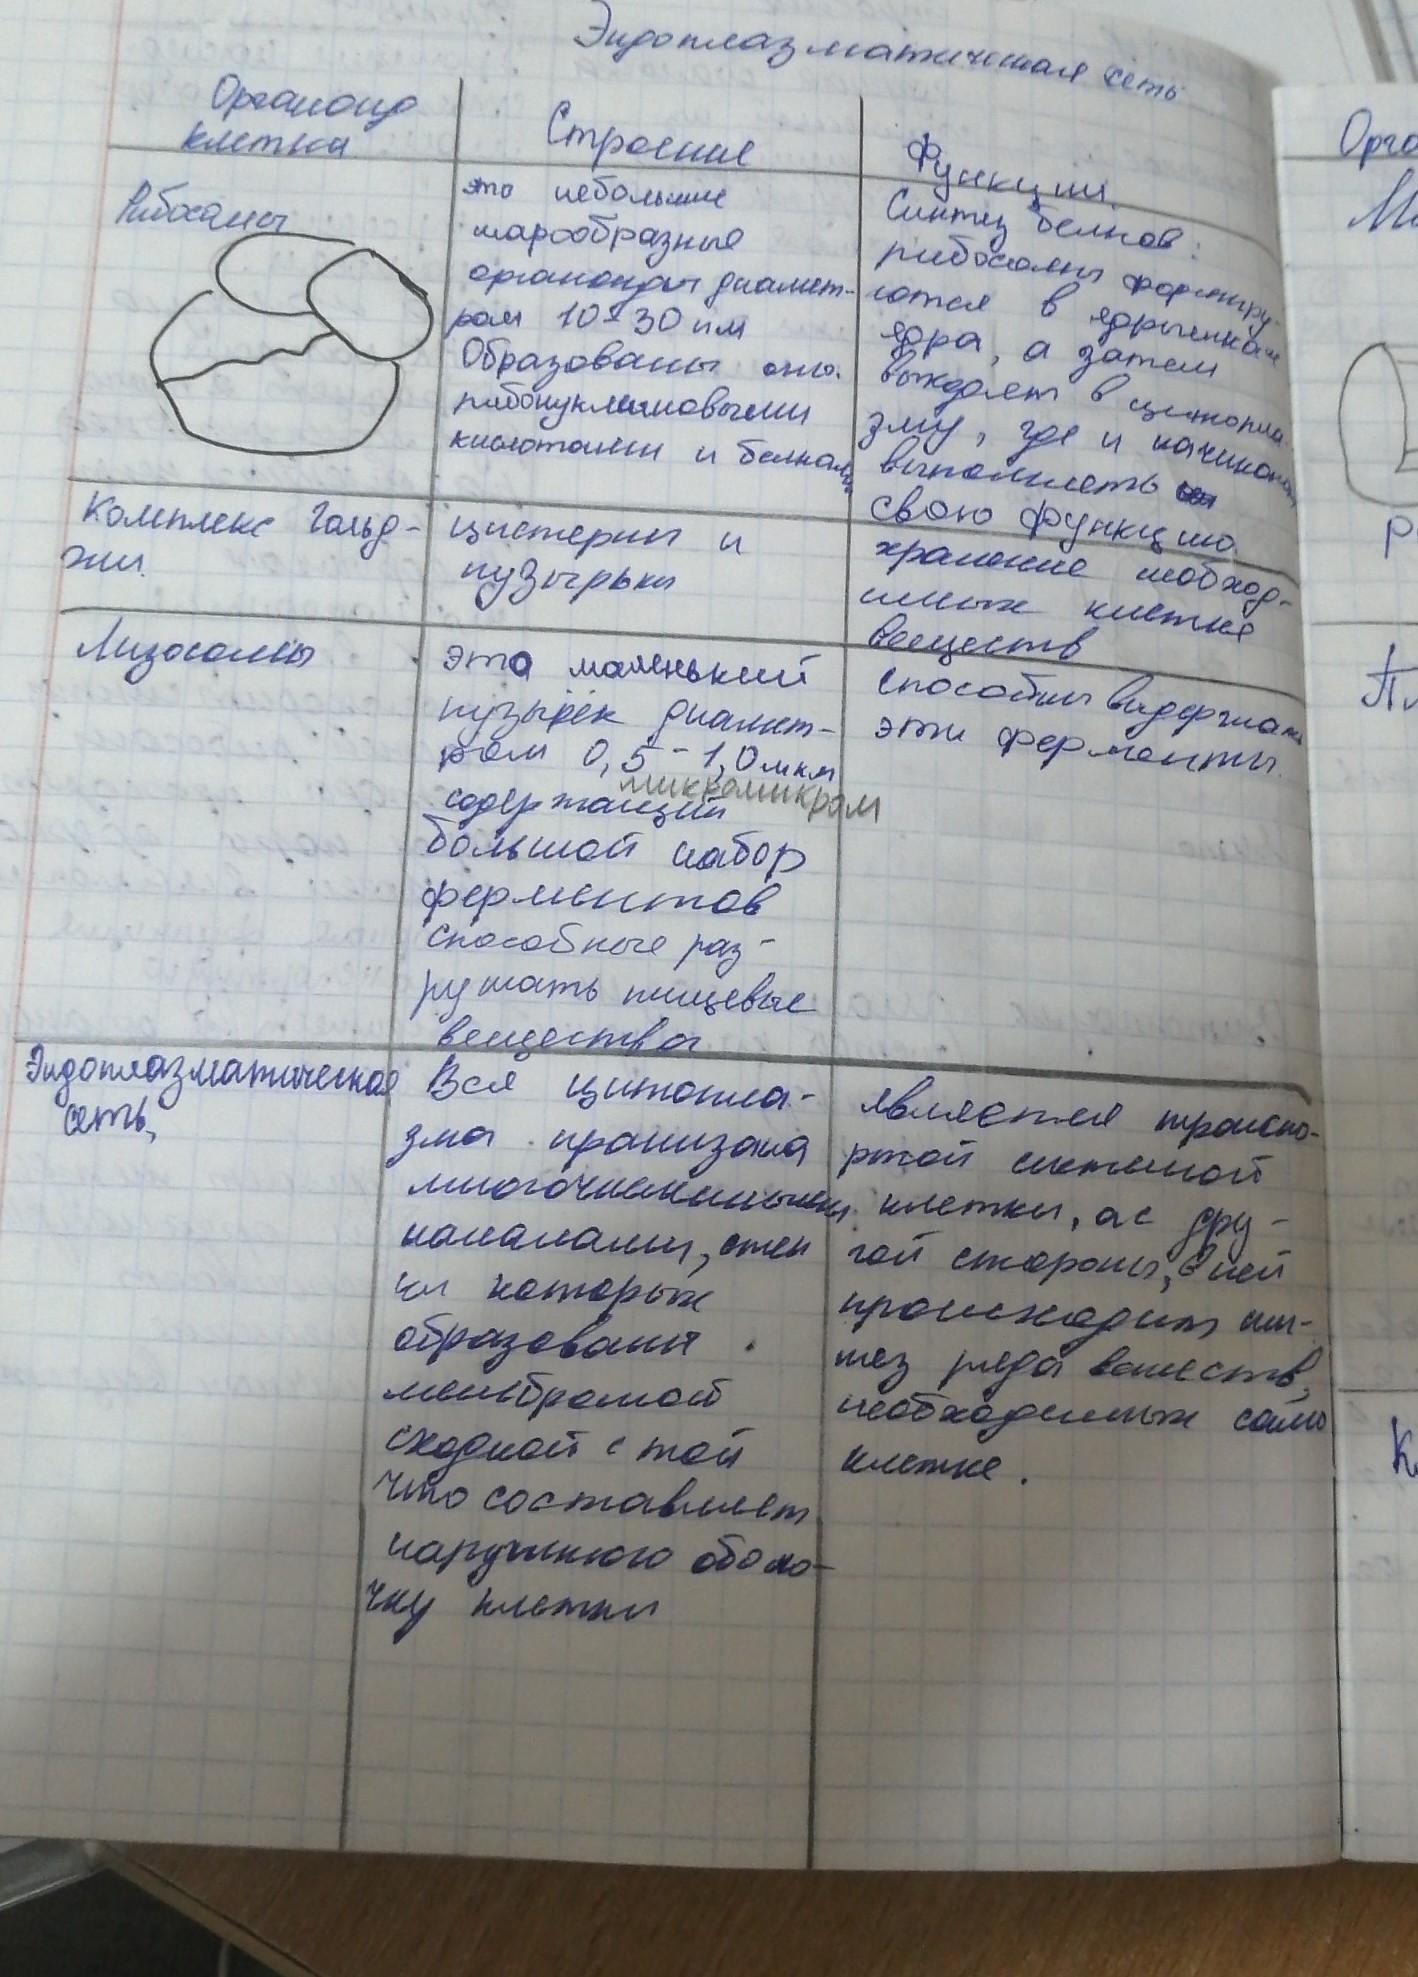 Эндоплазматичная сеть
Органоид
клетки
Строение
Функции
Рибосомы
это небольшие
шарообразные
органоиды диамет-
ром 10-30 нм
Образованы они
рибонуклеиновыми
кислотами и белками
Синтез белков:
рибосомы формиру-
ются в ядрышках
ядра, а затем
выходят в цитопла-
зму, где и начинают
выполнять
свою функцию
Комплекс Гольд-
жи
цистерны и
пузырьки
хранение необход-
имых клетке
веществ
Лизосомы
это маленький
пузырёк диамет-
ром 0,5-1,0 мкм
микромикром
содержащий
большой набор
ферментов
способные раз-
рушать пищевые
вещества
способны видержать
эти ферменты.
Эндоплазматическая
сеть,
Вся цитопла-
зма пронизана
многочисленными
каналами, стен
ки которых
образованы
мембраной
сходной с той
что составляет
наружную оболо-
чку клетки
является транспо-
ртой системой
клетки, а с дру-
гой стороны, в ней
происходит син-
тез ряда веществ,
необходимых само
клетке.
Орга
М
Р
Пл
К